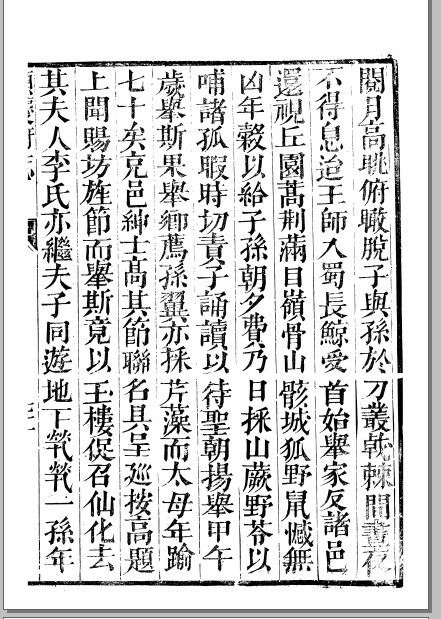 閱月高眺俯瞰脫子與孫於刀叢戟棘間晝夜
不得息迨王師入蜀長鯨受首始舉家反諸邑
還視丘園蒿荆滿目嶺骨山骸城狐野鼠憾無
凶年穀以給子孫朝夕費乃日採山蕨野苓以
哺諸孤暇時切責子誦讀以待聖朝揚舉甲午
歲舉斯果舉鄉薦孫翼亦採芹藻而太母年踰
七十矣克邑紳士高其節聯名具呈巡按高題
上聞賜坊旌節而舉斯竟以玉樓促召仙化去
其夫人李氏亦繼夫子同遊地下煢煢一孫年